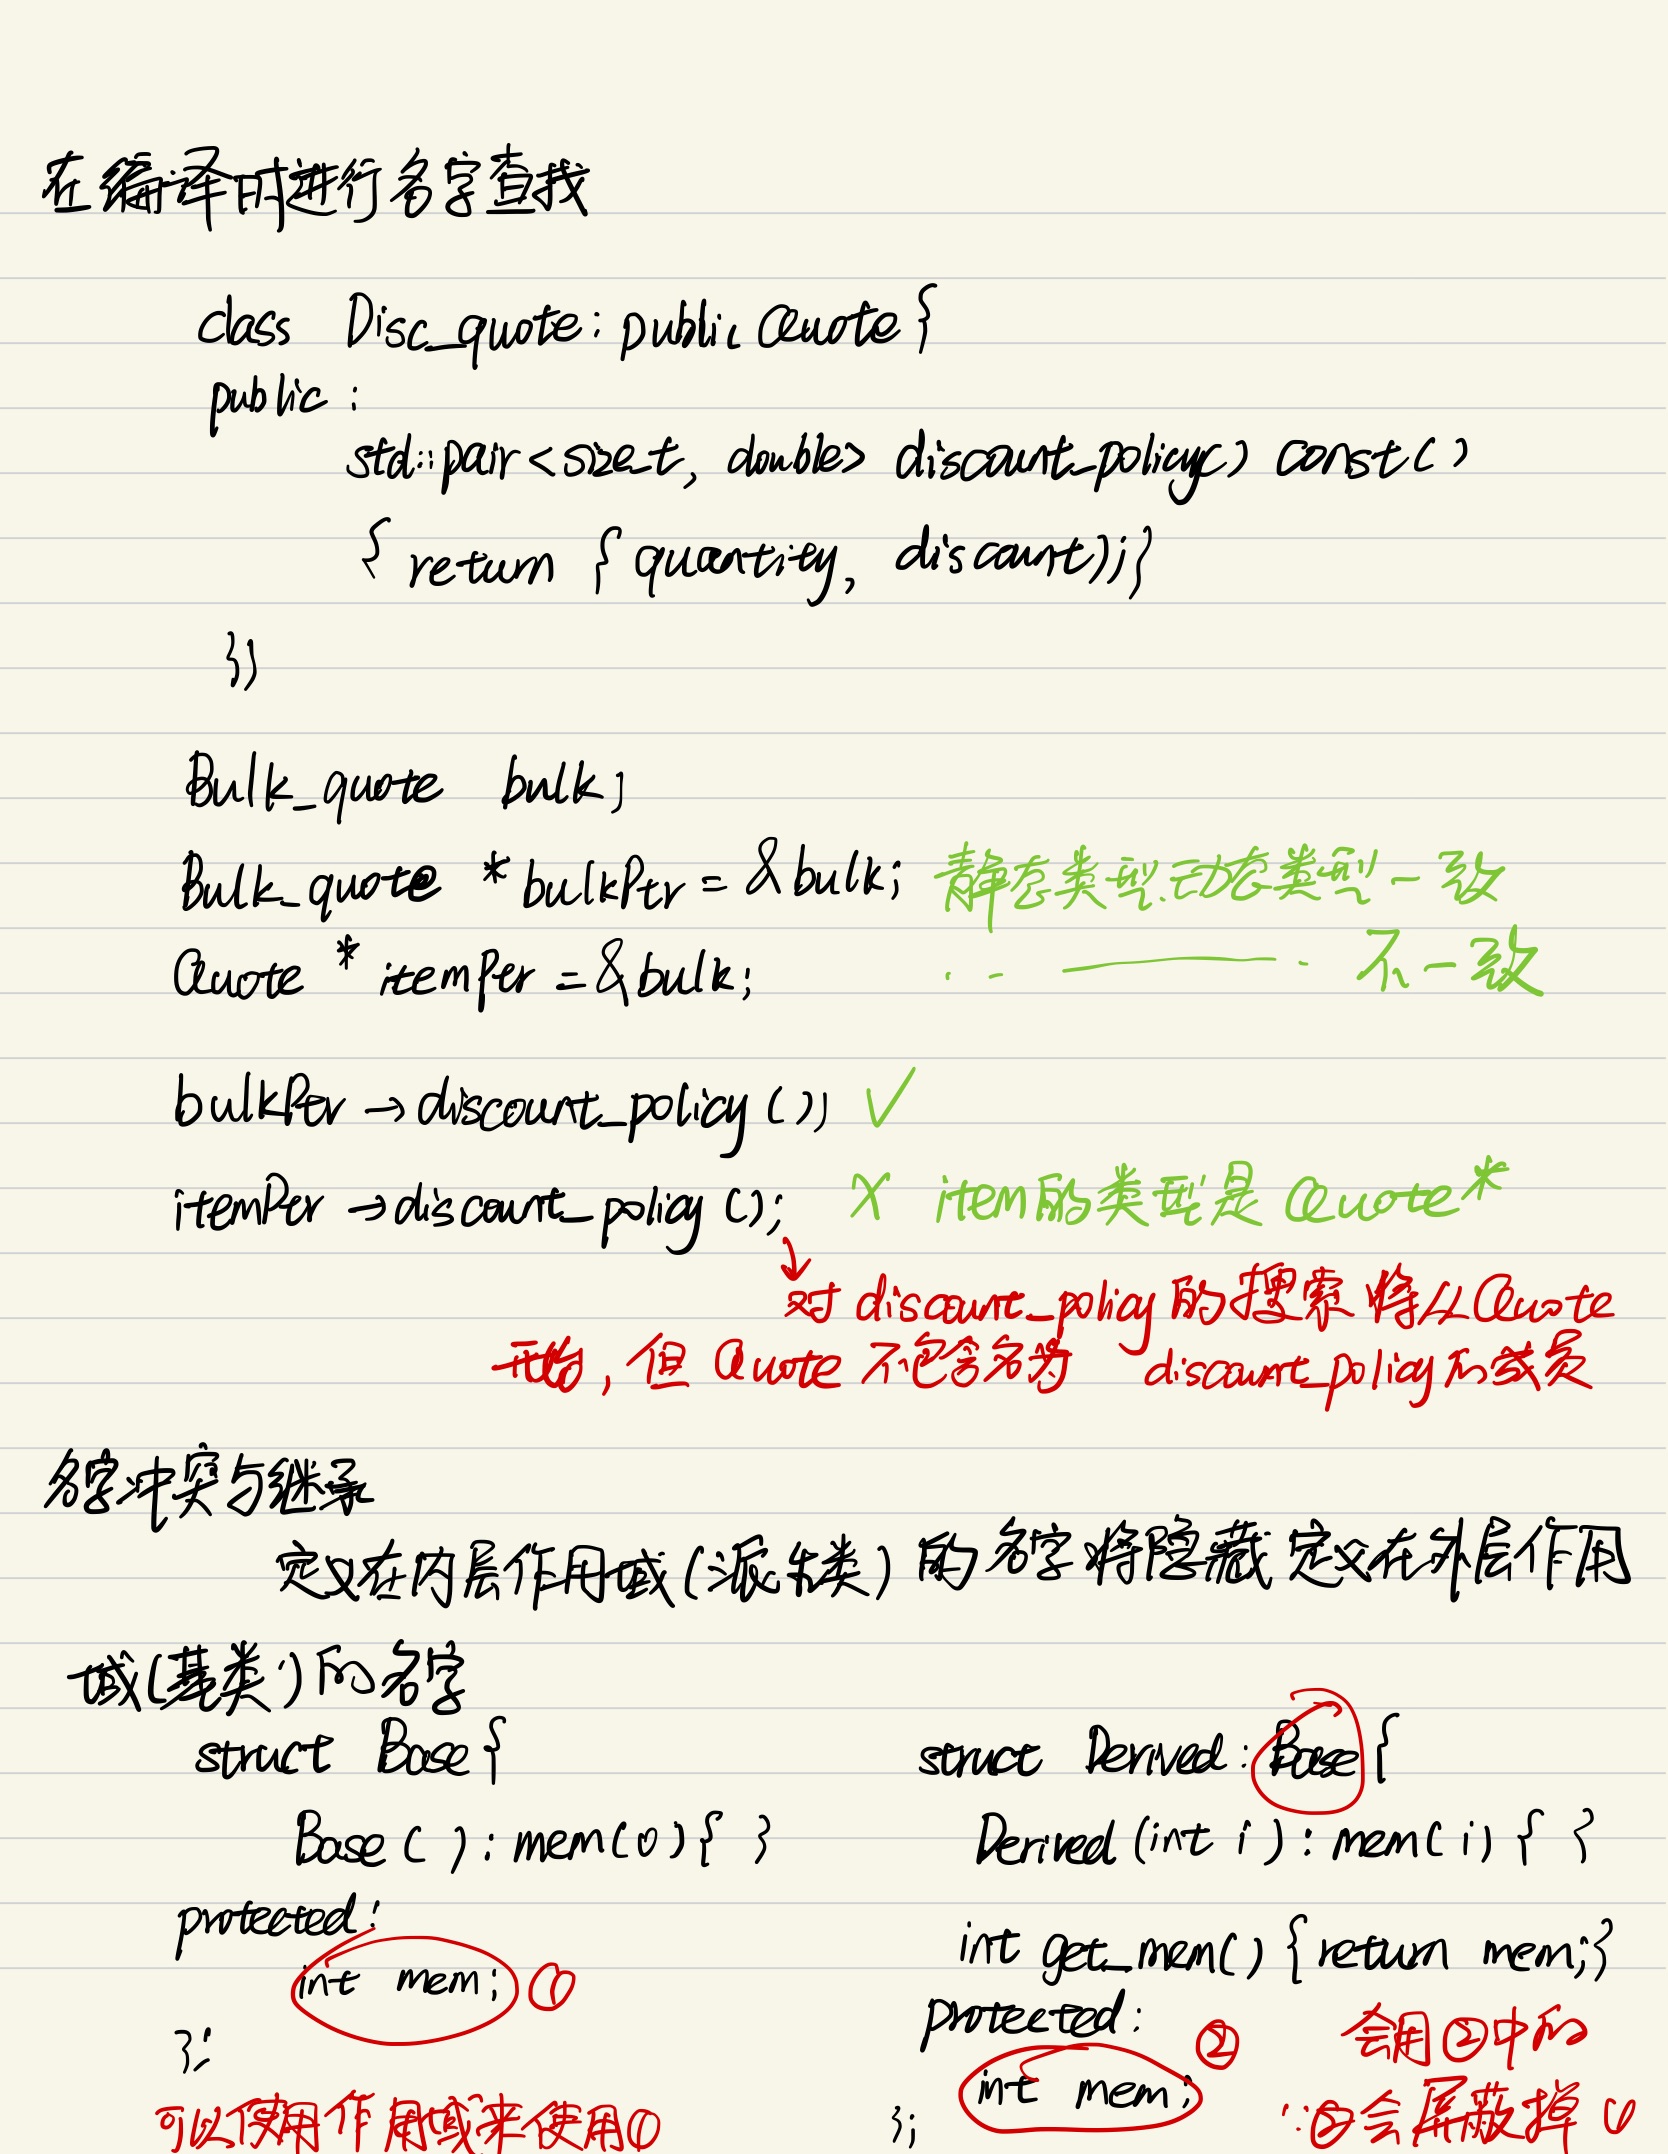 在编译时进行名字查找
class Disc_quote : public Quote {
public :
std::pair<size_t, double> discount_policy() const()
{ return { quantity, discount); }
};
Bulk_quote bulk;
Bulk_quote *bulkPtr = &bulk; 静态类型.动态类型一致
Quote * itemPer = &bulk; 不一致
bulkPtr → discount_policy (); ✓
itemPer → discount_policy (); X item的类型是 Quote*
↓
对 discount_policy 的搜索将从Quote
开始, 但 Quote 不包含名为 discount_policy的成员
名字冲突与继承
定义在内层作用域(派生类)的名字将隐藏定义在外层作用
域(基类)的名字
struct Base { struct Derived : Base {
Base ( ) : mem(0) { } Derived (int i) : mem(i) { }
protected: int get_mem() {return mem;}
int mem; ① protected :
}; ② 会用②中的
int mem;
可以使用作用域来使用① }; ∵②会屏蔽掉①